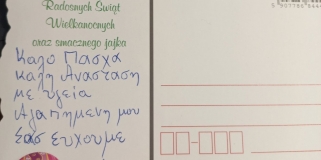 Radosnych Świąt
Wielkanocnych
oraz smacznego jajka
Καλο Πασχα
καλη Ανασταση
με υγεια
Αγαπημενη μου
Σας ευχουμε